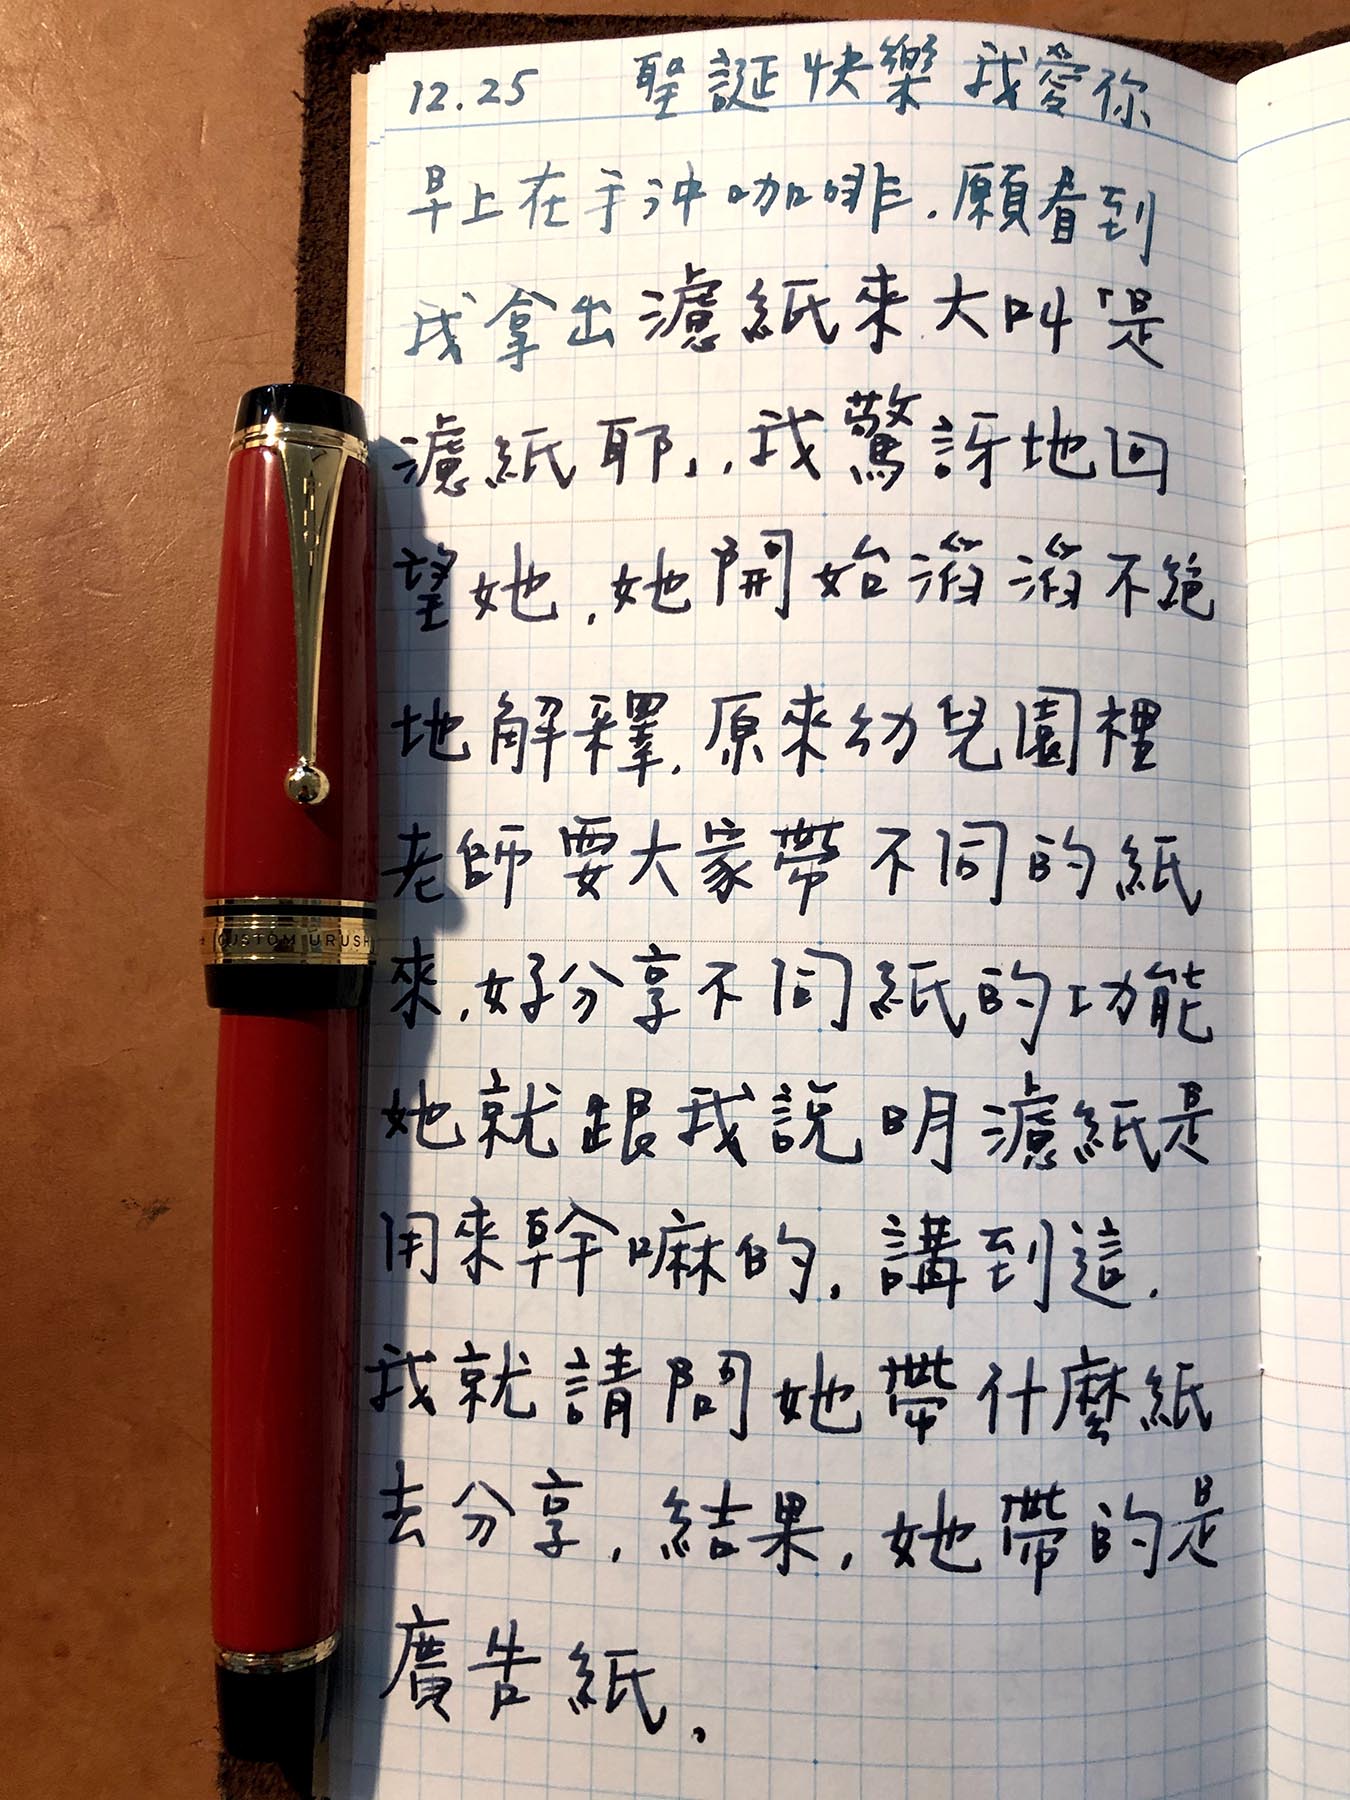 12.25 聖誕快樂 我愛你
早上在手沖咖啡.願看到
我拿出濾紙來大叫「是
濾紙耶」,我驚訝地回
望她,她開始滔滔不絕
地解釋,原來幼兒園裡
老師要大家帶不同的紙
來,好分享不同紙的功能
她就跟我說明濾紙是
用來幹嘛的,講到這,
我就請問她帶什麼紙
去分享,結果,她帶的是
廣告紙.
CUSTOM URUSH